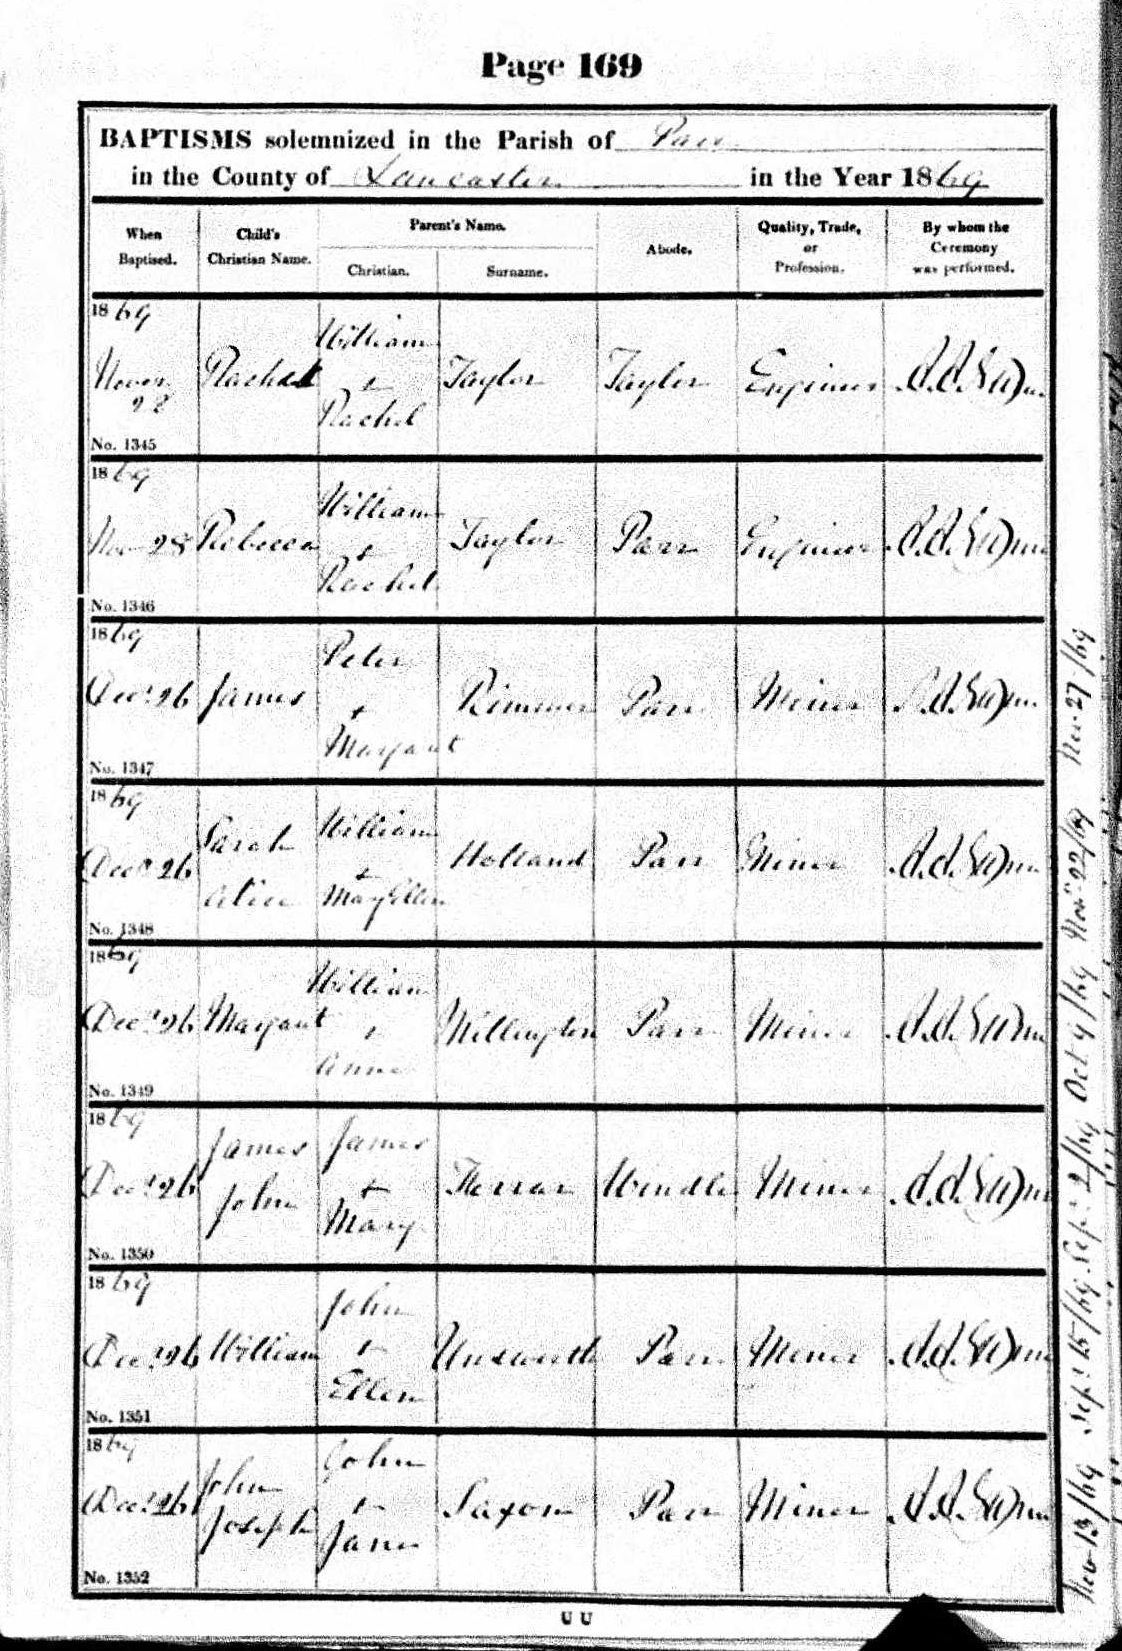 Page 169
BAPTISMS solemnized in the Parish of Parr
in the County of Lancaster in the Year 1869
When Baptised.
Child's Christian Name.
Parent's Name.
Christian.
Surname.
Abode.
Quality, Trade, or Profession.
By whom the Ceremony was performed.
1869
William
Novr. Rachel + Taylor Taylor Engineer
28 Rachel
No. 1345
1869
William
Nov 28 Rebecca + Taylor Parr Engineer
Rachel
No. 1346
1869
Peter
Decr 26 James + Rimmer Parr Miner
Margaret
No. 1347
1869
Sarah William
Decr 26 + Holland Parr Miner
Alice Mary Ellen
No. 1348
1869
William
Decr 26 Margaret + Millington Parr Miner
Anne
No. 1349
1869
James James
Decr 26 + Windle Miner
John Mary
No. 1350
1869
John
Decr 26 William + Unsworth Parr Miner
Ellen
No. 1351
1869
John John
Decr 26 + Saxon Parr Miner
Joseph Jane
No. 1352
U U
Nov 13/69 Sepr 15/69 Sepr 2/69 Oct 9/69 Novr 22/69 Nov 27/69